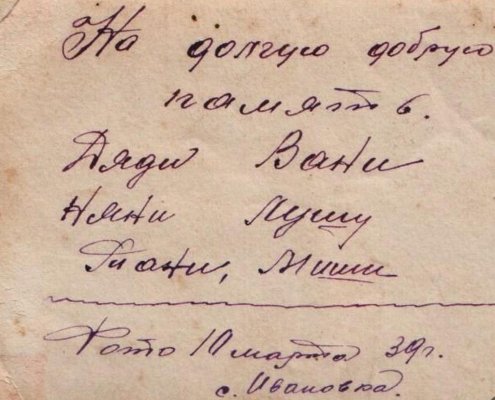 На долгую добрую
память.
Дяди Вани
Няни Луши
Тани, Миши
Фото 10 марта 39г.
с. Ивановка.